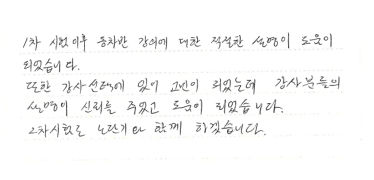 1차 시험이후 동차반 강의에 대한 적절한 설명이 도움이
되었습니다.
또한 강사선택에 있어 고민이 되었는데 강사분들의
설명이 신뢰를 주었고 도움이 되었습니다.
2차시험도 노단기와 함께 하겠습니다.